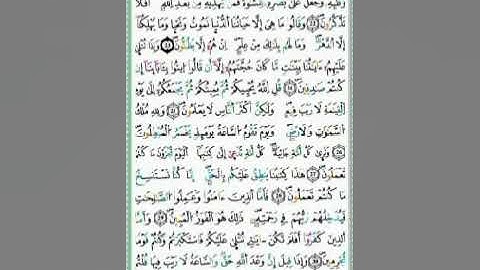 وَقَلْبِهِۦ وَجَعَلَ عَلَىٰ بَصَرِهِۦ غِشَٰوَةً فَمَن يَهْدِيهِ مِنۢ بَعْدِ ٱللَّهِ أَفَلَا
تَذَكَّرُونَ وَقَالُوا۟ مَا هِىَ إِلَّا حَيَاتُنَا ٱلدُّنْيَا نَمُوتُ وَنَحْيَا وَمَا يُهْلِكُنَآ
إِلَّا ٱلدَّهْرُ وَمَا لَهُم بِذَٰلِكَ مِنْ عِلْمٍ إِنْ هُمْ إِلَّا يَظُنُّونَ وَإِذَا تُتْلَىٰ
عَلَيْهِمْ ءَايَٰتُنَا بَيِّنَٰتٍ مَّا كَانَ حُجَّتَهُمْ إِلَّآ أَن قَالُوا۟ ٱئْتُوا۟ بِـَٔابَآئِنَآ إِن
كُنتُمْ صَٰدِقِينَ قُلِ ٱللَّهُ يُحْيِيكُمْ ثُمَّ يُمِيتُكُمْ ثُمَّ يَجْمَعُكُمْ إِلَىٰ يَوْمِ
ٱلْقِيَٰمَةِ لَا رَيْبَ فِيهِ وَلَٰكِنَّ أَكْثَرَ ٱلنَّاسِ لَا يَعْلَمُونَ وَلِلَّهِ مُلْكُ
ٱلسَّمَٰوَٰتِ وَٱلْأَرْضِ وَيَوْمَ تَقُومُ ٱلسَّاعَةُ يَوْمَئِذٍ يَخْسَرُ ٱلْمُبْطِلُونَ
وَتَرَىٰ كُلَّ أُمَّةٍ جَاثِيَةً كُلُّ أُمَّةٍ تُدْعَىٰٓ إِلَىٰ كِتَٰبِهَا ٱلْيَوْمَ تُجْزَوْنَ مَا كُنتُمْ
تَعْمَلُونَ هَٰذَا كِتَٰبُنَا يَنطِقُ عَلَيْكُم بِٱلْحَقِّ إِنَّا كُنَّا نَسْتَنسِخُ
مَا كُنتُمْ تَعْمَلُونَ فَأَمَّا ٱلَّذِينَ ءَامَنُوا۟ وَعَمِلُوا۟ ٱلصَّٰلِحَٰتِ
فَيُدْخِلُهُمْ رَبُّهُمْ فِى رَحْمَتِهِۦ ذَٰلِكَ هُوَ ٱلْفَوْزُ ٱلْمُبِينُ وَأَمَّا
ٱلَّذِينَ كَفَرُوٓا۟ أَفَلَمْ تَكُنْ ءَايَٰتِى تُتْلَىٰ عَلَيْكُمْ فَٱسْتَكْبَرْتُمْ وَكُنتُمْ قَوْمًا
مُّجْرِمِينَ وَإِذَا قِيلَ إِنَّ وَعْدَ ٱللَّهِ حَقٌّ وَٱلسَّاعَةُ لَا رَيْبَ فِيهَا قُلْتُم